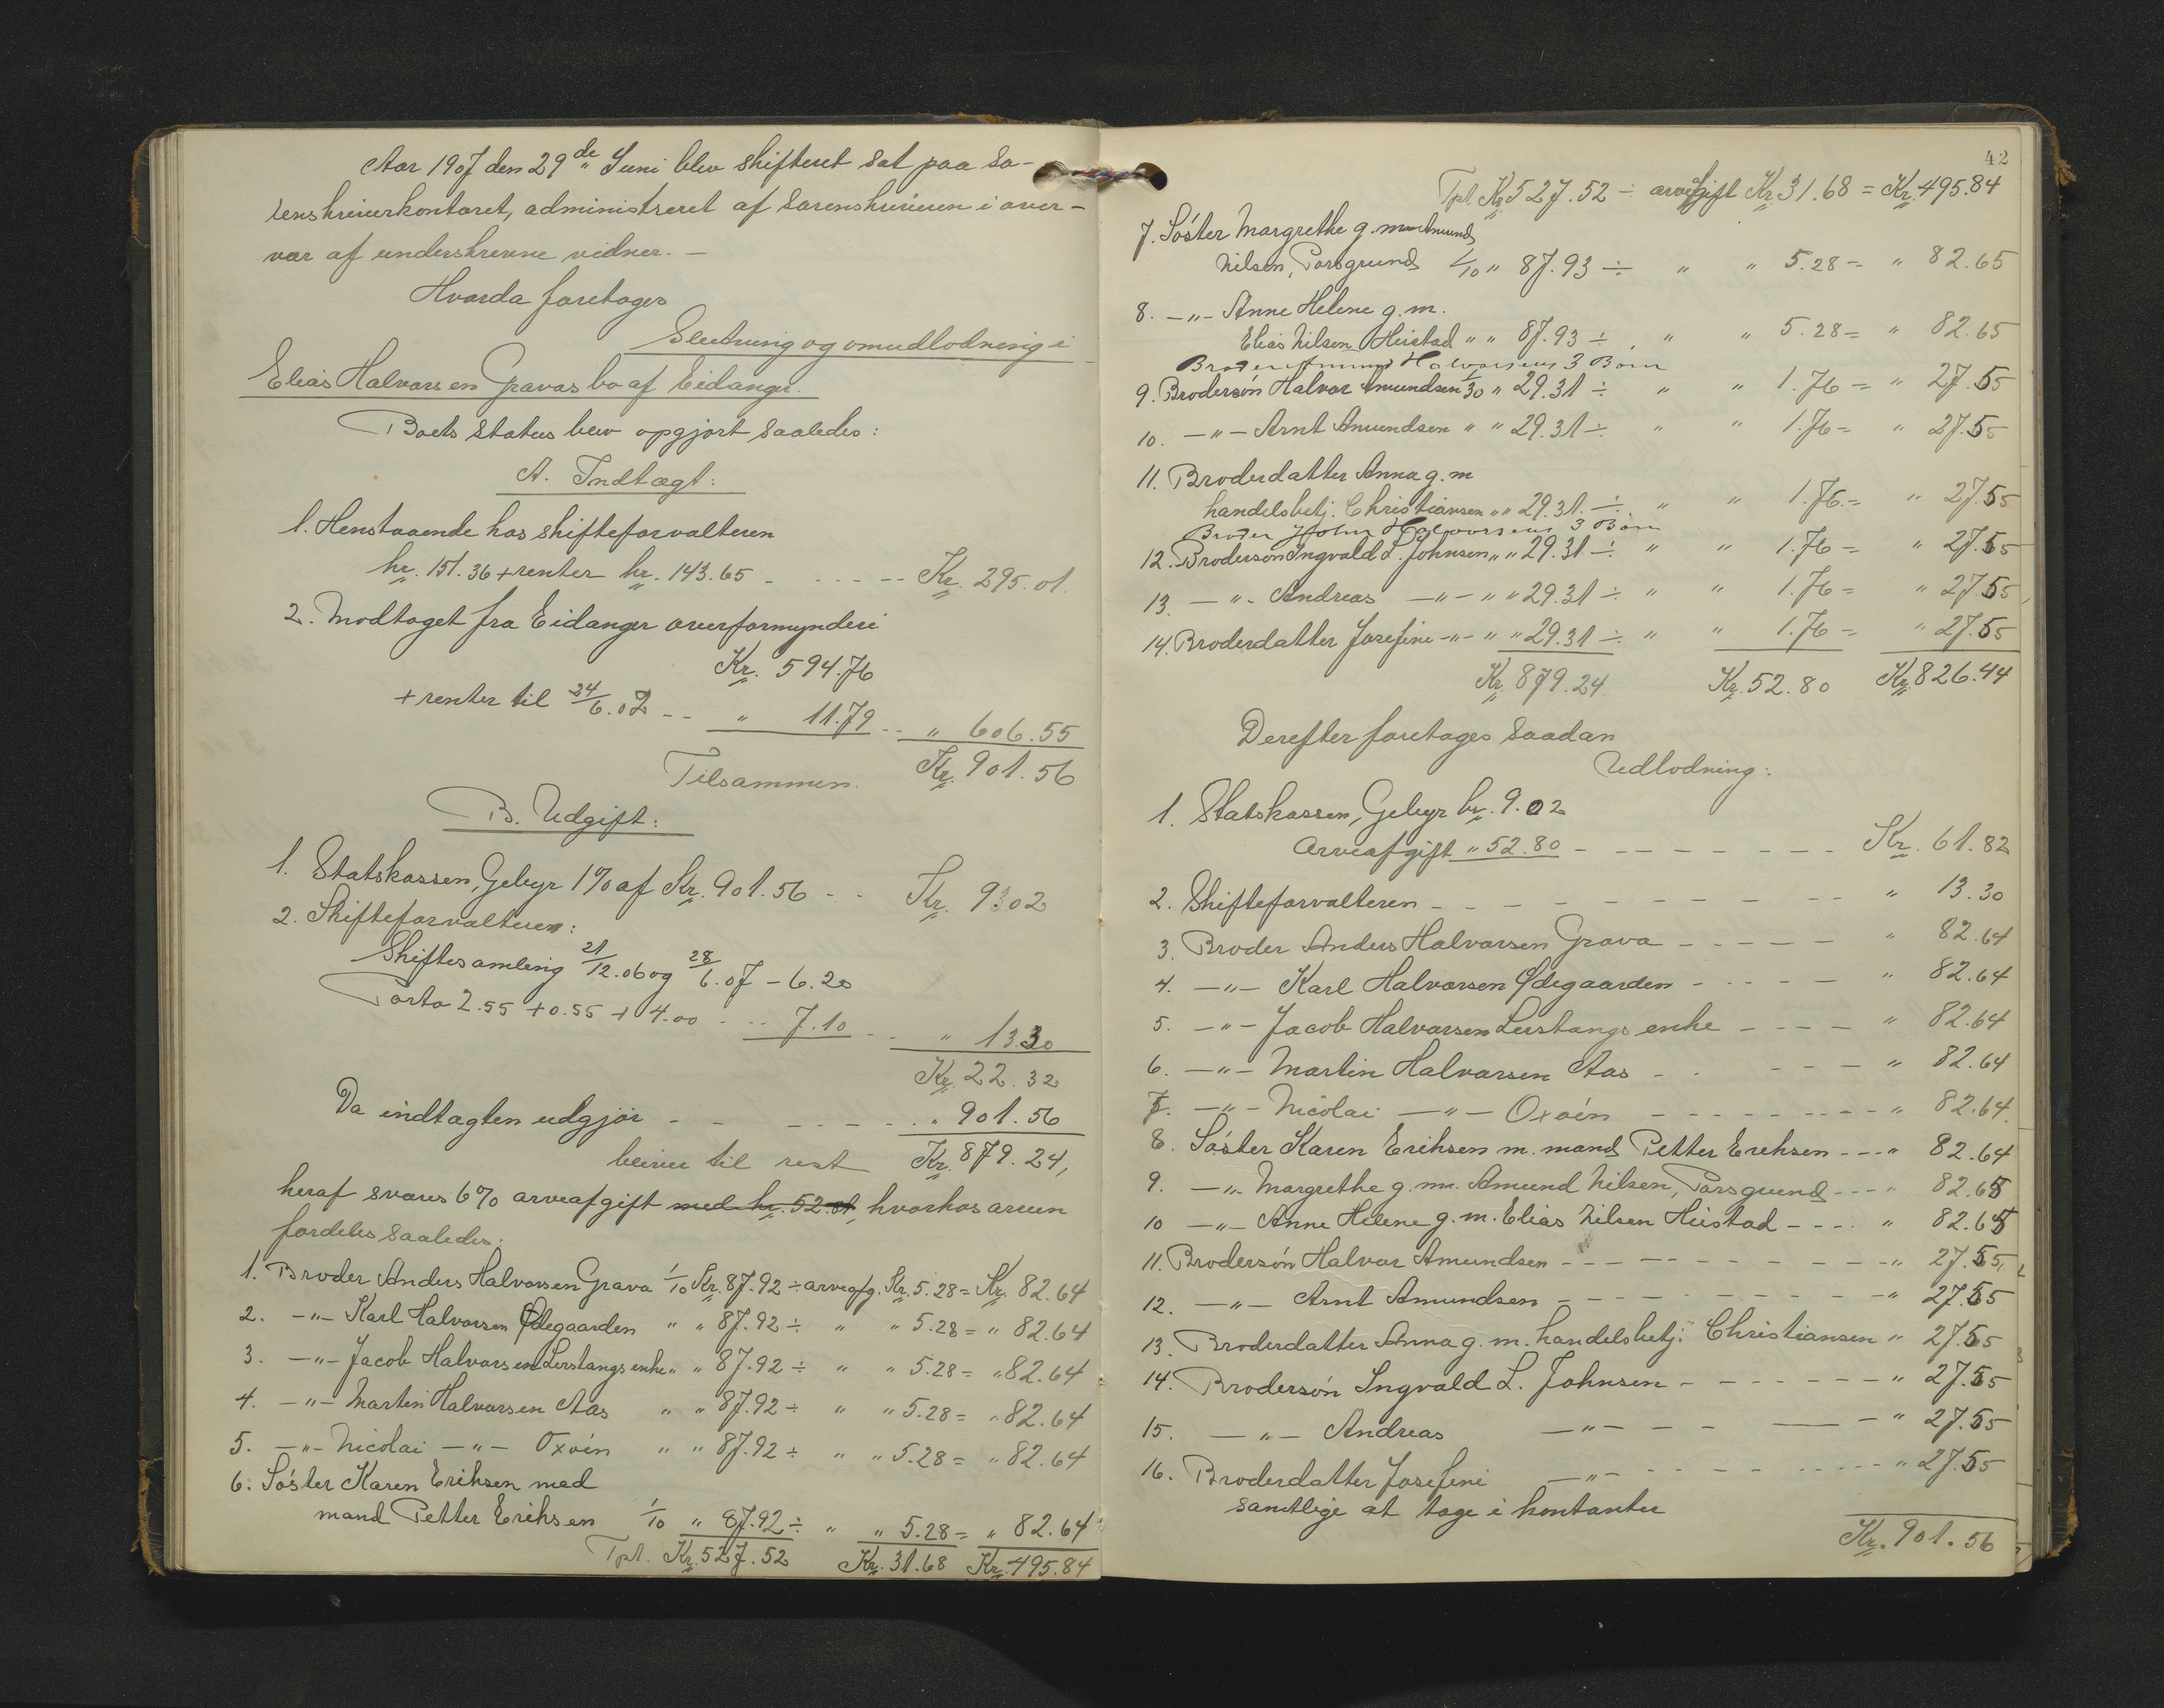 Aar 1907 den 29de Juni blev skifteret sat paa So-
renskriverkontoret, administreret af Sorenskriveren i over-
vær af underskrevne vidner. –
Hvorda foretoges
Slutning og omudlodning i
Elias Halvorsen Gravas bo af Eidanger.
Boets status blev opgjort saaledes:
A. Indtægt:
1. Henstaaende hos skifteforvalteren
kr. 151.36 + renter kr. 143.65 - - - - - Kr. 295.01.
2. Modtaget fra Eidanger overformynderi
Kr. 594.76
+ renter til 24/6.07 - - " 11.79 - - " 606.55
Tilsammen. Kr. 901.56
B. Udgift:
1. Statskassen, Gebyr 1% af Kr. 901.56 - - Kr. 9.02
2. Skifteforvalteren:
Skiftesamling 21/12.06 og 28/6.07 - 6.20
Porto 2.55 + 0.55 + 4.00 - - - 7.10 - - " 13.30
Kr. 22.32
Da indtægten udgjør - - - - - - " 901.56
bliver til rest Kr. 879.24,
heraf svares 6% arveafgift med kr. 52. hvorhos arven
fordeles saaledes:
1. Broder Anders Halvorsen Grava 1/10 Kr. 87.92 ÷ arveafg. Kr. 5.28 = Kr. 82.64
2. -"- Karl Halvorsen Ødegaarden " " 87.92 ÷ " " 5.28 = " 82.64
3. -"- Jacob Halvorsen Lerstangs enke " " 87.92 ÷ " " 5.28 = " 82.64
4. -"- Martin Halvorsen Aas " " 87.92 ÷ " " 5.28 = " 82.64
5. -"- Nicolai -"- Oxøen " " 87.92 ÷ " " 5.28 = " 82.64
6. Søster Karen Eriksen med
mand Petter Eriksen 1/10 " 87.92 ÷ " " 5.28 = " 82.64
Tpt. Kr. 527.52 Kr. 31.68 Kr. 495.84
42
Tpt. Kr. 527.52 ÷ arveafgift Kr. 31.68 = Kr. 495.84
7. Søster Margrethe g. m. Amund
Nilsen, Porsgrund 1/10 " 87.93 ÷ " " 5.28 = " 82.65
8. -"- Anne Helene g. m.
Elias Nilsen Heistad " " 87.93 ÷ " " 5.28 = " 82.65
Broder Amund Halvorsens 3 Børn
9. Brodersøn Halvor Amundsen 1/30 " 29.31 ÷ " " 1.76 = " 27.55
10. -"- Arnt Amundsen " " 29.31 ÷ " " 1.76 = " 27.55
11. Broderdatter Anna g. m
handelsbetj. Christiansen " " 29.31. ÷ " " 1.76. = " 27.55
Broder John Halvorsens 3 Børn
12. Brodersøn Ingvald L. Johnsen " " 29.31 ÷ " " 1.76 = " 27.55
13. -"- Andreas -"- " " 29.31 ÷ " " 1.76 = " 27.55
14. Broderdatter Josefine -"- " " 29.31 ÷ " " 1.76 = " 27.55
Kr. 879.24 Kr. 52.80 Kr. 826.44
Derefter foretoges saadan
Udlodning:
1. Statskassen, Gebyr kr. 9.02
Arveafgift " 52.80 - - - - - - - - Kr. 61.82
2. Skifteforvalteren - - - - - - - - - - - " 13.30
3. Broder Anders Halvorsen Grava - - - - - " 82.64
4. -"- Karl Halvorsen Ødegaarden - - - - - " 82.64
5. -"- Jacob Halvorsen Lerstangs enke - - - - " 82.64
6. -"- Martin Halvorsen Aas - - - - - " 82.64
7. -"- Nicolai -"- Oxøen - - - - - - - - - " 82.64.
8. Søster Karen Eriksen m. mand Petter Eriksen - - - " 82.64
9. -"- Margrethe g. m. Amund Nilsen, Porsgrund - - - " 82.65
10 -"- Anne Helene g. m. Elias Nilsen Heistad - - - - " 82.65
11. Brodersøn Halvor Amundsen - - - - - - - - - - - " 27.55,
12. -"- Arnt Amundsen - - - - - - - - - - - " 27.55
13. Broderdatter Anna g. m. handelsbetj. Christiansen " 27.55
14. Brodersøn Ingvald L. Johnsen - - - - - - - " 27.55
15. -"- Andreas -"- - - - - " 27.55
16. Broderdatter Josefine -"- - - - - - - - - " 27.55
samtlige at tage i kontanter
Kr. 901.56